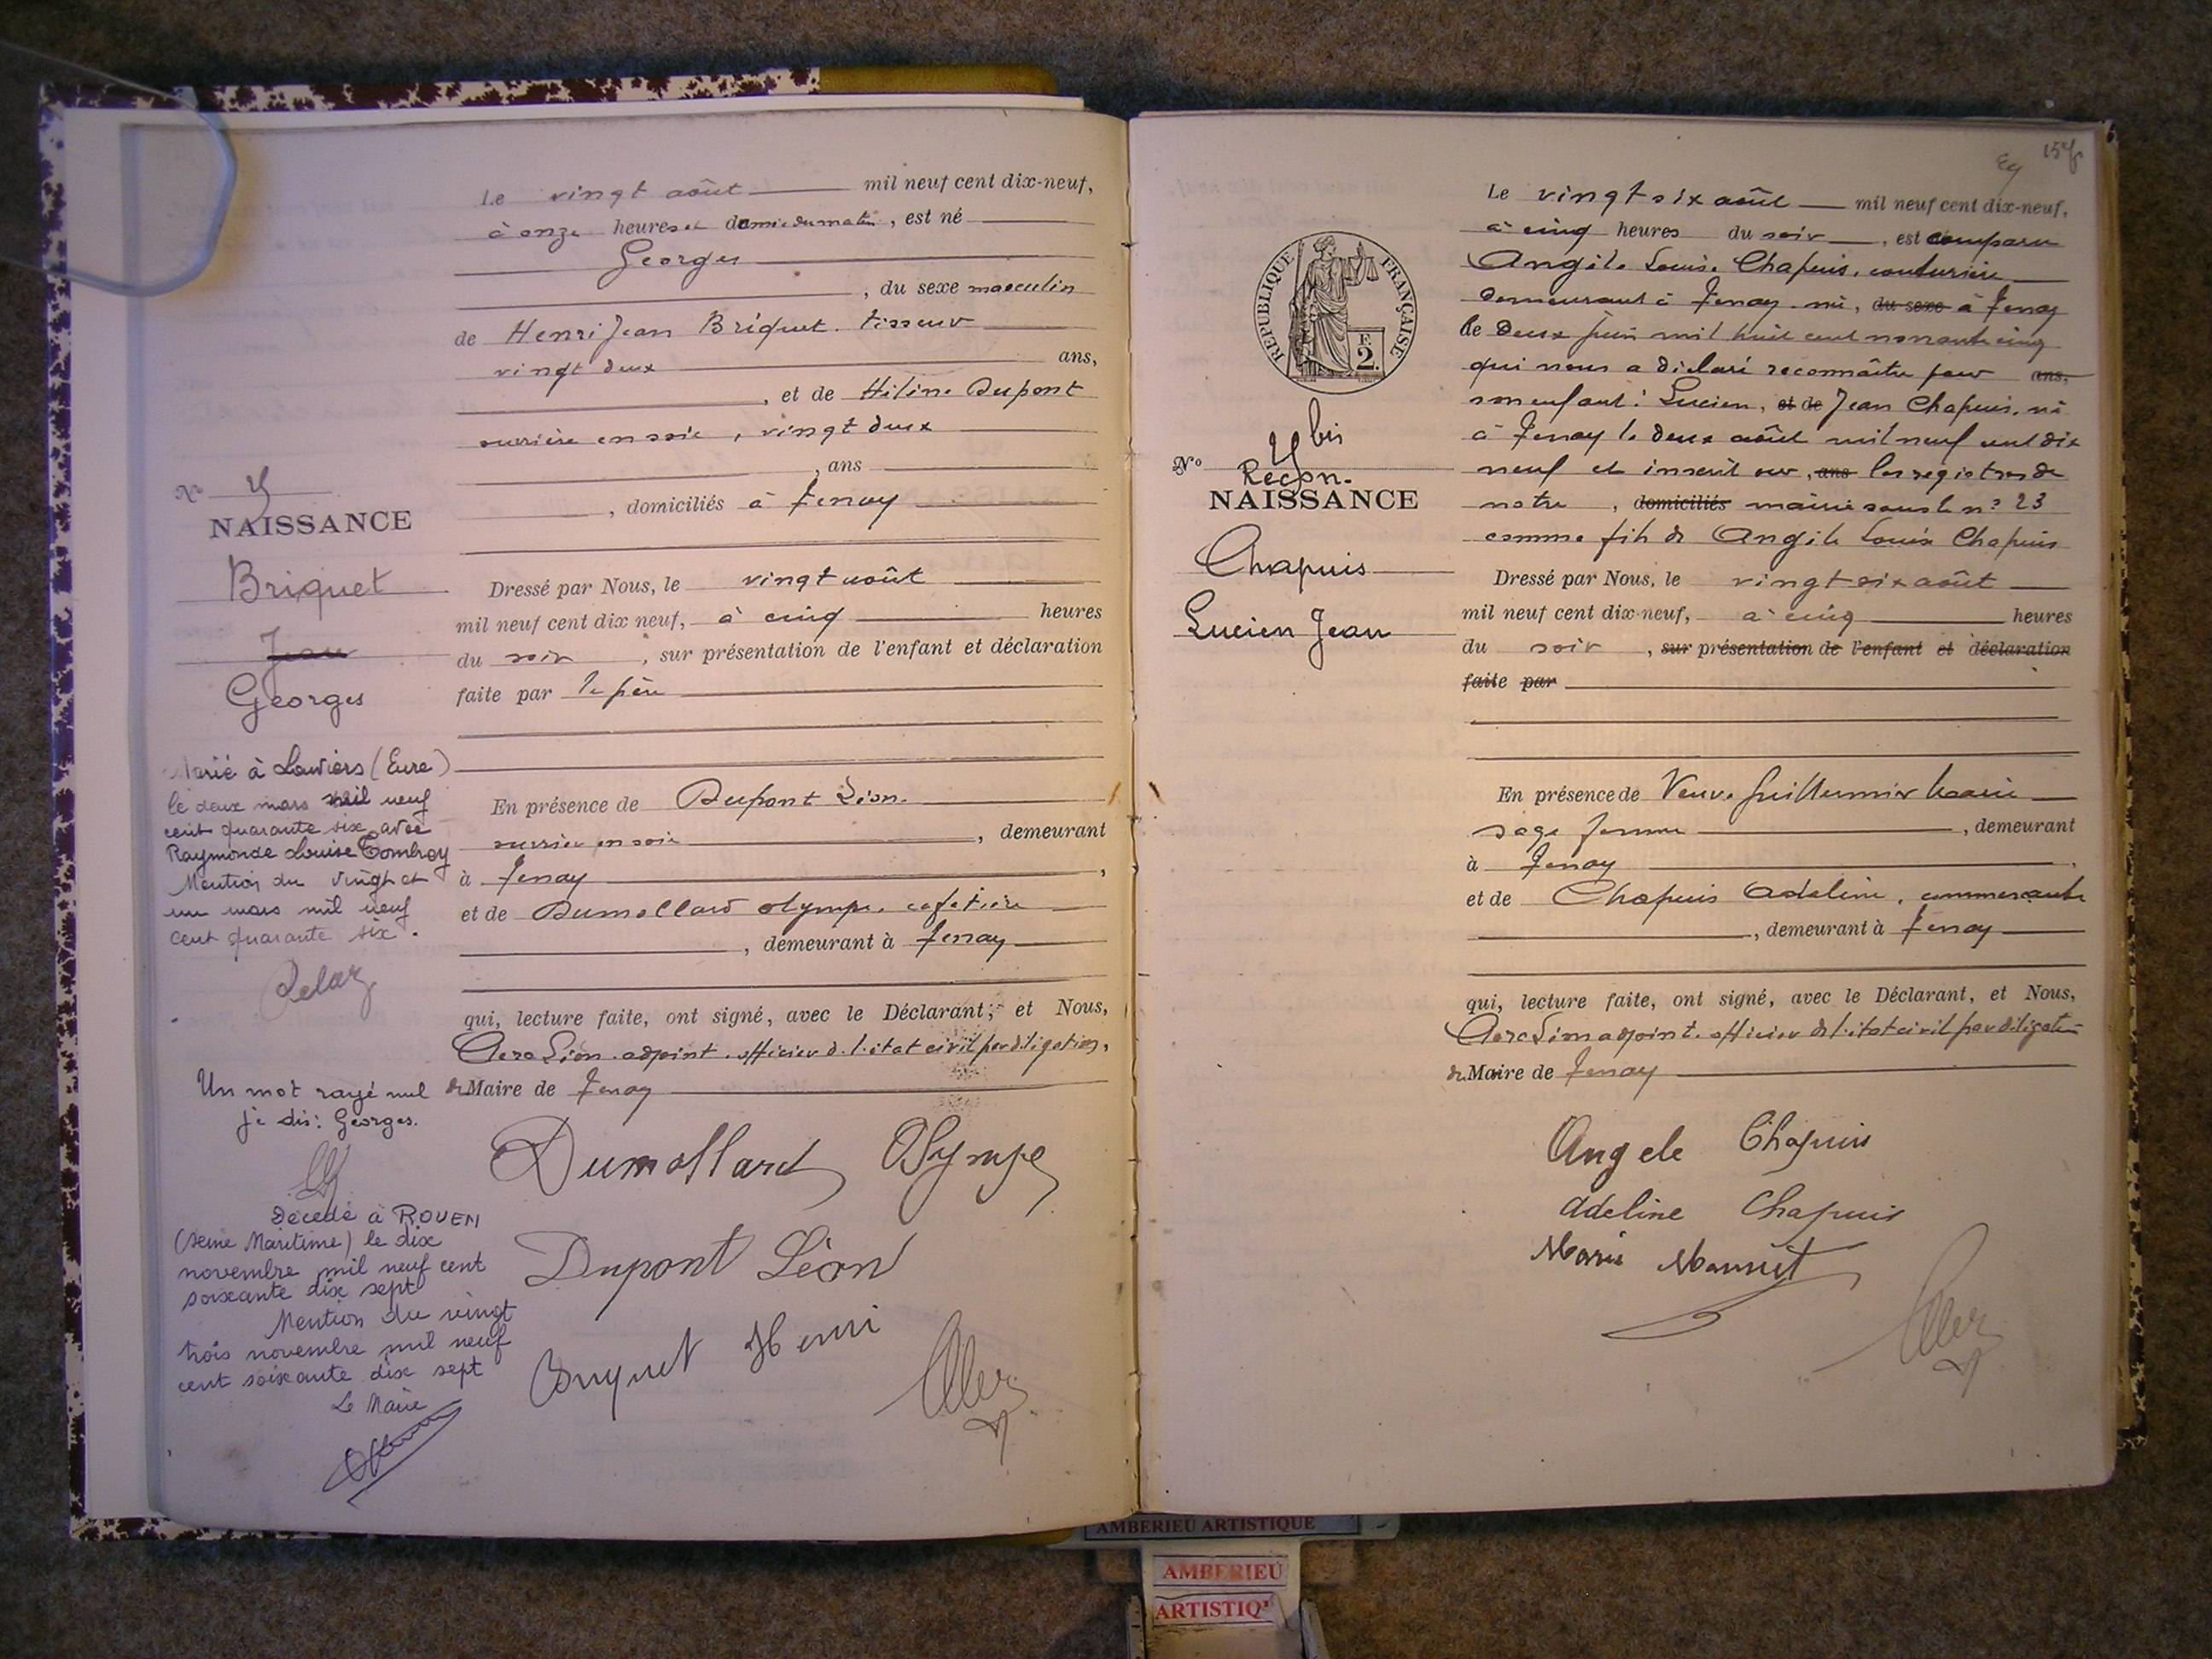 Le vingt août mil neuf cent dix-neuf,
à onze heures et demie du matin, est né
Georges
, du sexe masculin
de Henri Jean Briquet. tisseur
vingt deux ans,
, et de Hélène Dupont
ouvrière en soie, vingt deux
, ans
, domiciliés à Tenay
Nº
NAISSANCE
Briquet
Jean
Georges
Dressé par Nous, le vingt août
mil neuf cent dix neuf, à cinq heures
du soir, sur présentation de l'enfant et déclaration
faite par le père
Marié à Louviers (Eure)
le deux mars mil neuf
cent quarante six avec
Raymonde Louise
Mention du vingt et
un mars mil neuf
cent quarante six.
En présence de Dupont Léon.
ouvrier en soie, demeurant
à Tenay,
et de Dumollard Olympe. cafetière
, demeurant à Tenay
qui, lecture faite, ont signé, avec le Déclarant, et Nous,
Léon. adjoint. officier de l'état civil par délégation,
du Maire de Tenay
Un mot rayé nul
je dis: Georges.
Décédé à ROUEN
(Seine Maritime) le dix
novembre mil neuf cent
soixante dix sept
Mention du vingt
trois novembre mil neuf
cent soixante dix sept
Le Maire
Dumollard Olympe
Dupont Léon
Briquet Henri
Le vingt six août mil neuf cent dix-neuf,
à cinq heures du soir, est comparu
Angèle Louise Chapuis, couturière
demeurant à Tenay née, du sexe à Tenay
le deux juin mil huit cent nonante cinq
qui nous a déclaré reconnaître pour ans,
son enfant: Lucien, et de Jean Chapuis, né
à Tenay le deux août mil neuf cent dix
neuf et inscrit sur, ans les registres de
notre, domiciliés mairie sous le nº 23
comme fils de Angèle Louise Chapuis
REPUBLIQUE FRANÇAISE
F.
2.
Nº bis
Recon.
NAISSANCE
Chapuis
Lucien Jean
Dressé par Nous, le vingt six août
mil neuf cent dix-neuf, à cinq heures
du soir, sur présentation de l'enfant et déclaration
faite par
En présence de Veuve Guillermier Marie
sage femme, demeurant
à Tenay.
et de Chapuis Adeline, commerçante
, demeurant à Tenay
qui, lecture faite, ont signé, avec le Déclarant, et Nous,
Léon adjoint. officier de l'état civil par délégation
du Maire de Tenay
Angele Chapuis
Adeline Chapuis
Marie
AMBERIEU ARTISTIQUE
AMBERIEU
ARTISTIQ